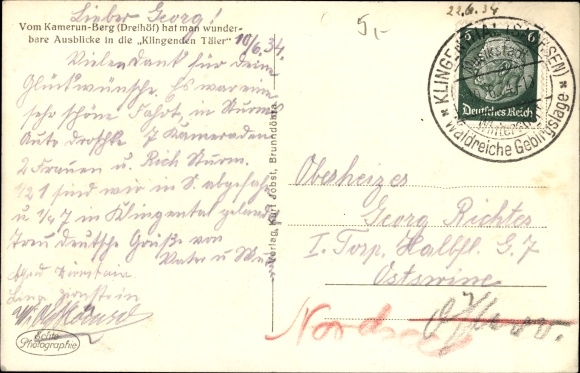 Lieber Georg!
Vom Kamerun-Berg (Dreihöf) hat man wunder-
bare Ausblicke in die „Klingenden Täler“
10/6.34.
Vielen Dank für deine
Glückwünsche. Es war eine
sehr schöne Fahrt, in Sturms
Auto droschke 7 Kameraden
2 Frauen u. Rich Sturm.
1/2 1 sind wir in S. abgefahr
u 1/4 7 in Klingental gelandet
Treu Deutsche Grüße von
Vater u
Echte
Photographie
Verlag Kurt Jobst, Brunndöbra
5,-
22.6.34
KLINGENTHAL (SACHSEN)
Waldreiche Gebirgslage
6 6
Deutsches Reich
Oberheizer
Georg Richter
I. Torp. Halbfl. G. 7
Ostswine
Nordsee